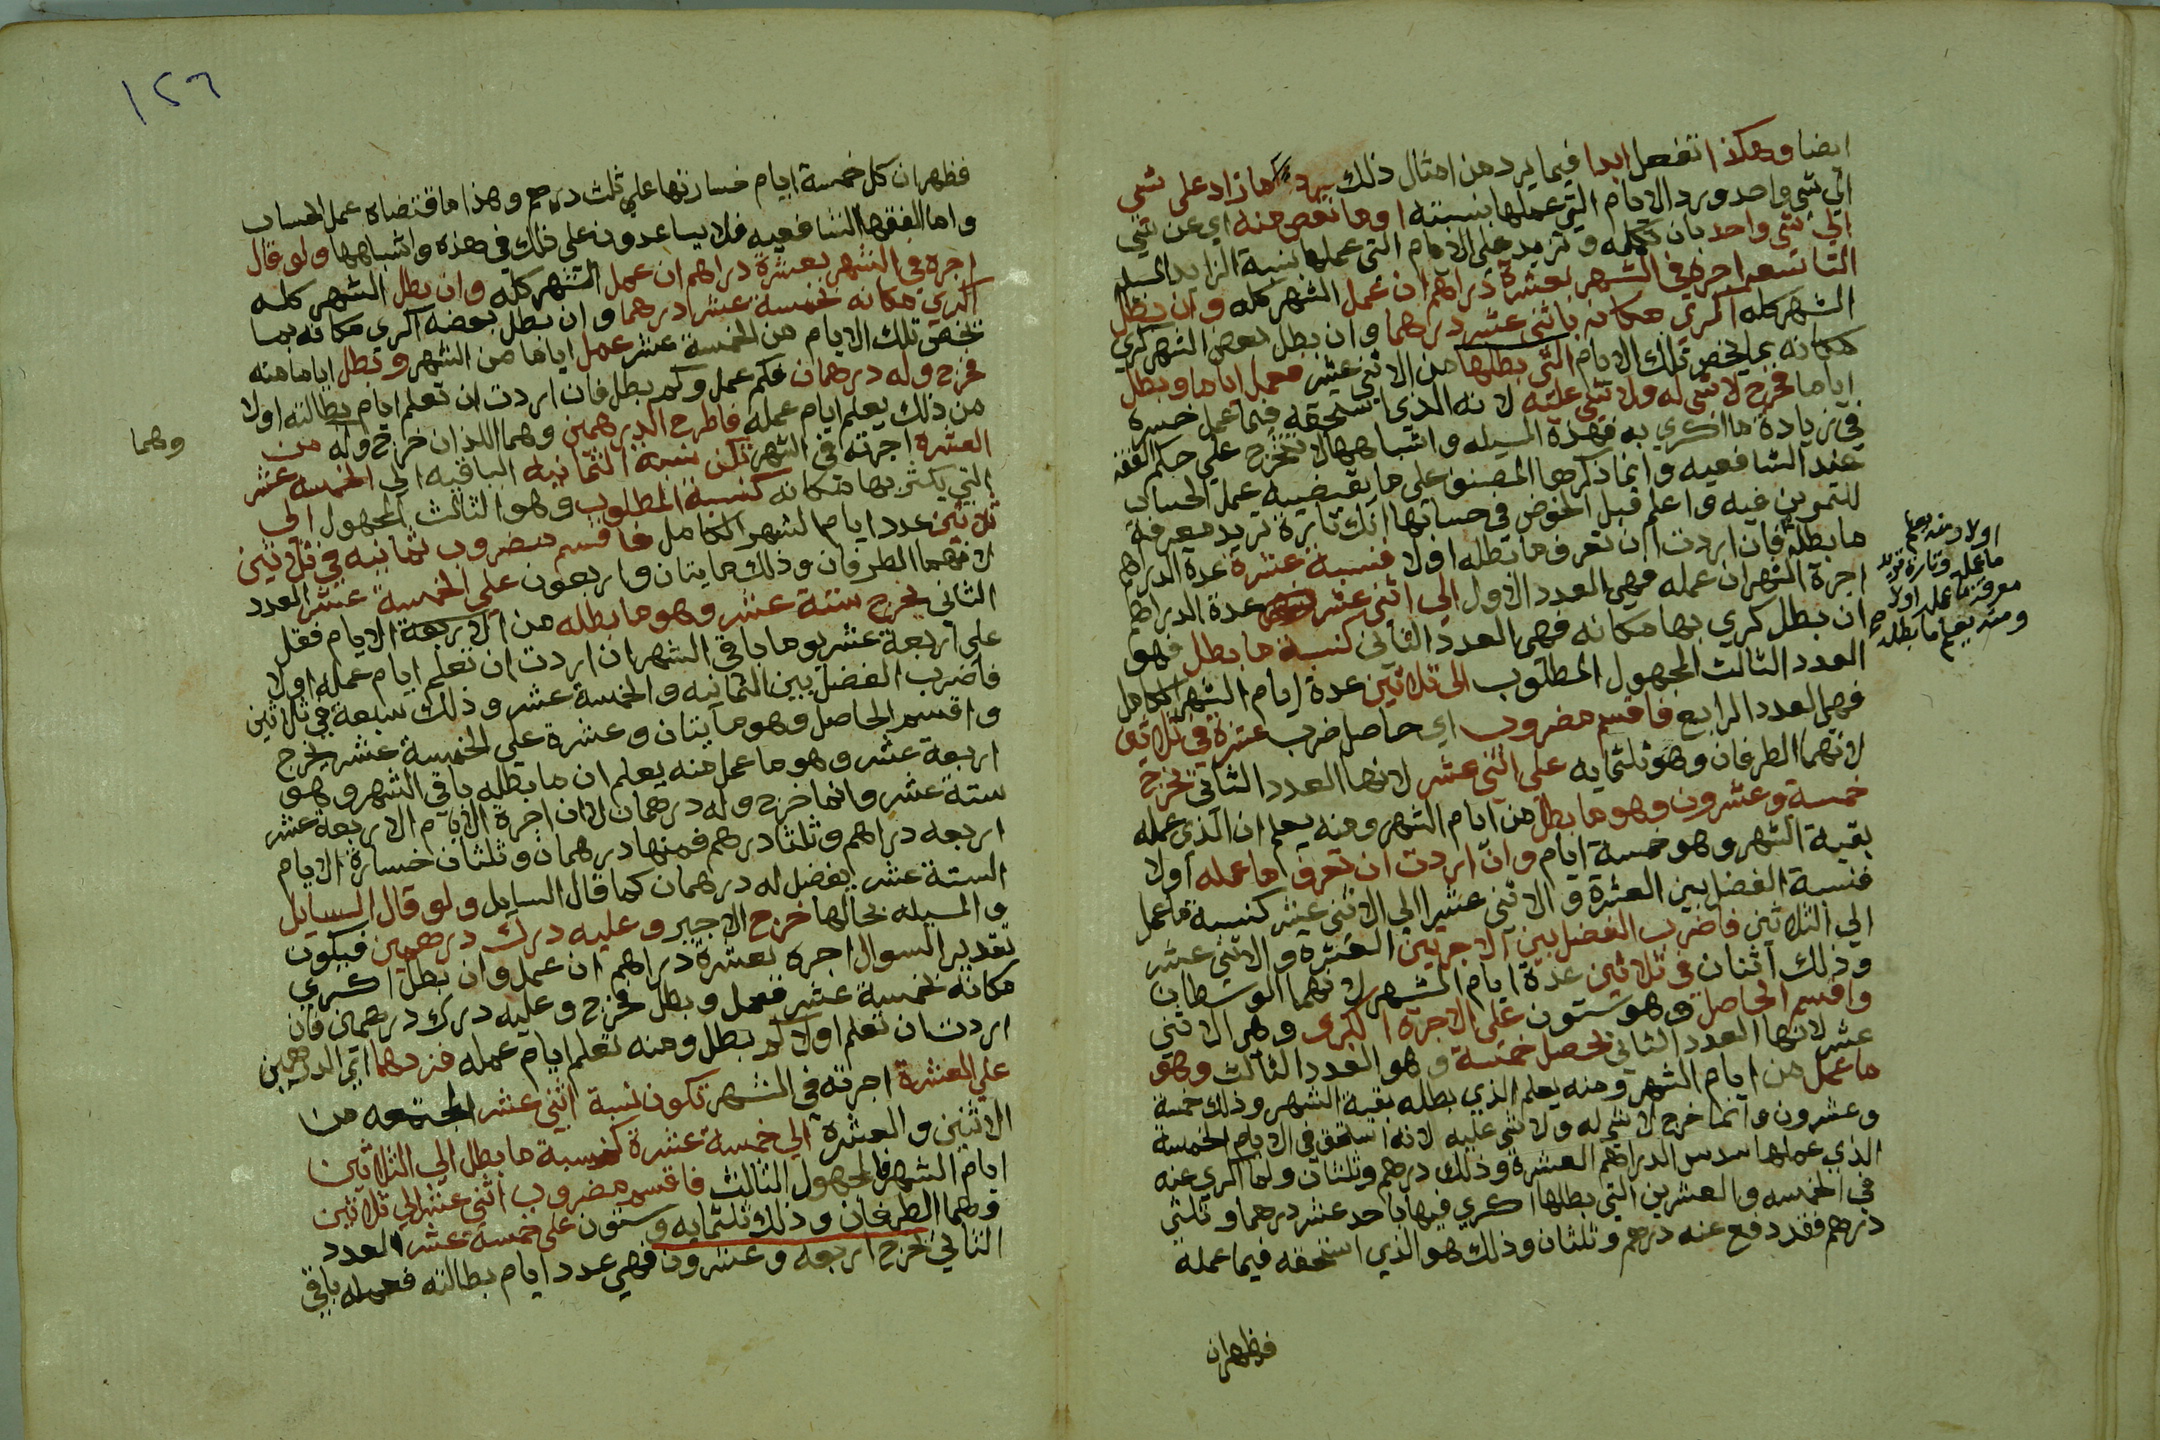 ايضا وهكذا تفعل ابدا فيما يرد من امثال ذلك برد ما زاد على شي
الي شي واحد ورد الايام التي عملها بنسبته او ما نقص منه اي عن شي
الي شي واحد بان تكمله وتزيد على الايام التي عملها بنسبة الزايد المسيله
التاسعه اجره في الشهر بعشرة دراهم ان عمل الشهر كله وان بطل
الشهر كله اكري مكانه باثني عشر درهما وان بطل بعض الشهر اكري
مكانه بما يخص تلك الايام التي بطلها من الاثني عشر فعمل اياما وبطل
اياما فخرج لا شي له ولا شي عليه لانه الذي يستحقه فيما عمل خسره
في زيادة ما اكري به فهذه المسيله واشباهها لا تتخرج علي حكم الفقه
عند الشافعيه وانما ذكرها المصنف على ما يقتضيه عمل الحساب
للتمرين فيه واعلم قبل الخوض في حسابها انك تارة تريد معرفة
ما بطله فان اردت ان تعرف ما بطله اولا فنسبة عشرة عدة الدراهم
اجرة الشهر ان عمله فهي العدد الاول الي اثني عشر عدة الدراهم
ان بطل كري بها مكانه فهي العدد الثاني كنسبة ما بطل فهو
العدد الثالث المجهول المطلوب الى ثلاثين عدة ايام الشهر الكامل
فهي العدد الرابع فاقسم مضروب اي حاصل ضرب عشرة في ثلاثين
لانهما الطرفان وهو ثلثمايه على اثني عشر لانها العدد الثاني يخرج
خمسة وعشرون وهو ما بطل من ايام الشهر ومنه يعلم ان الذي عمله
بقية الشهر وهو خمسة ايام وان اردت ان تعرف ما عمله اولا
فنسبة الفضل بين العشرة والاثني عشر الي الاثني عشر كنسبة ما عمل
الي الثلاثين فاضرب الفضل بين الاجرتين العشره والاثني عشر
وذلك اثنان في ثلاثين عدة ايام الشهر لانهما الوسطان
واقسم الحاصل وهو ستون على الاجرة الكبرى وهي الاثني
عشر لانها العدد الثاني يحصل خمسة وهو العدد الثالث وهو
ما عمل من ايام الشهر ومنه يعلم الذي بطله بقية الشهر وذلك خمسة
وعشرون وانما خرج لا شي له ولا شي عليه لانه استحق في الايام الخمسة
الذي عملها سدس الدراهم العشرة وذلك درهم وثلثان ولما اكري عنه
في الخمسه والعشرين التي بطلها اكري فيها باحد عشر درهما وثلثي
درهم فقد دفع عنه درهم وثلثان وذلك هو الذي استحقه فيما عمله
فظهر ان
اولا ومنه يعلم
ما عمله وتارة تريد
معرفة ما عمله اولا
ومنه يعلم ما بطله
١٢٦
فظهر ان كل خمسة ايام خسارتها علي ثلث درهم وهذا ما اقتضاه عمل الحساب
واما الفقها الشافعيه فلا يساعدون على ذلك في هذه واشباهها ولو قال
اجره في الشهر بعشرة دراهم ان عمل الشهر كله وان بطل الشهر كله
اكري مكانه بخمسة عشر درهما وان بطل بعضه اكري مكانه بما
يخص تلك الايام من الخمسة عشر عمل اياما من الشهر وبطل اياما منه
فخرج وله درهمان فكم عمل وكم بطل فان اردت ان تعلم ايام بطالته اولا
من ذلك يعلم ايام عمله فاطرح الدرهمين وهما اللذان خرج وله من
وهما
العشره اجرته في الشهر تكن نسبة الثمانيه الباقيه الى الخمسه عشر
التي يكتري بها مكانه كنسبة المطلوب وهو الثالث المجهول الي
ثلاثين عدد ايام الشهر الكامل فاقسم مضروب ثمانيه في ثلاثين
لانهما الطرفان وذلك مايتان واربعون على الخمسة عشر العدد
الثاني يخرج ستة عشر وهو ما بطله من الاربعة الايام فقل
علي اربعة عشر يوما باقي الشهر ان اردت ان تعلم ايام عمله اولا
فاضرب الفضل بين الثمانيه والخمسة عشر وذلك سبعة في ثلاثين
واقسم الحاصل وهو مايتان وعشرة علي الخمسة عشر يخرج
اربعة عشر وهو ما عمل منه يعلم ان ما بطله باقي الشهر وهو
ستة عشر وانما خرج وله درهمان لان اجرة الايام الاربعة عشر
اربعه دراهم وثلثا درهم فمنها درهمان وثلثان خسارة الايام
الستة عشر يفضل له درهمان كما قال السايل ولو قال السايل
والمسيله بحالها خرج الاجير وعليه درك درهمين فيكون
تقدير السوال اجره بعشرة دراهم ان عمل وان بطل اكري
مكانه بخمسة عشر فعمل وبطل فخرج وعليه درك درهمين فان
اردت ان تعلم اولا كم بطل ومنه تعلم ايام عمله فزدهما اي الدرهمين
علي العشرة اجرته في الشهر تكون نسبة اثني عشر المجتمعه من
الاثنين والعشرة الي خمسة عشرة كنسبة ما بطل الي الثلاثين
ايام الشهر فالمجهول الثالث فاقسم مضروب اثني عشر الي ثلاثين
وهما الطرفان وذلك ثلثمايه وستون على خمسة عشر العدد
الثاني يخرج اربعه وعشرون فهي عدد ايام بطالته فعمله باقي